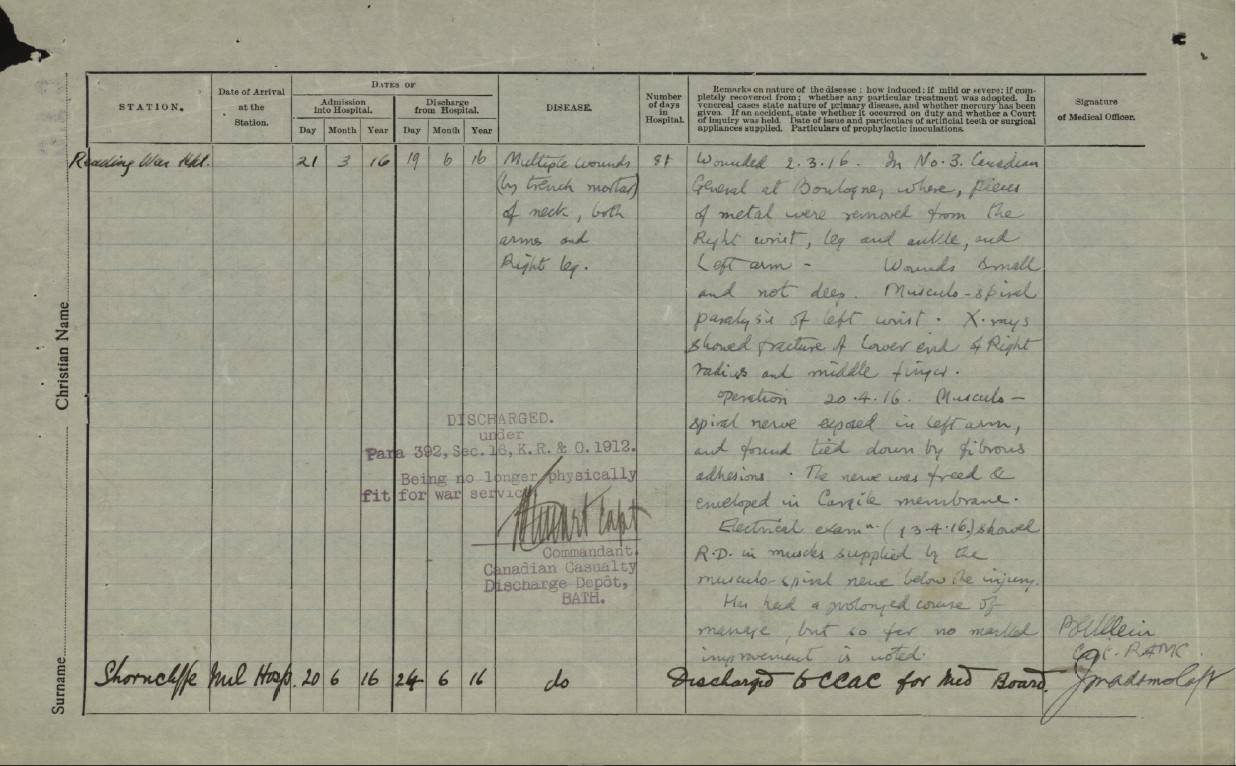 STATION.
Date of Arrival
at the
Station.
DATES OF
Admission
into Hospital.
Discharge
from Hospital.
Day Month Year Day Month Year
DISEASE.
Number
of days
in
Hospital.
Remarks on nature of the disease : how induced ; if mild or severe : if com-
pletely recovered from ; whether any particular treatment was adopted. In
venereal cases state nature of primary disease, and whether mercury has been
given. If an accident, state whether it occurred on duty and whether a Court
of Inquiry was held. Date of issue and particulars of artificial teeth or surgical
appliances supplied. Particulars of prophylactic inoculations.
Signature
of Medical Officer.
Reading War Hpl. 21 3 16 19 6 16
Multiple wounds
(by trench mortar)
of neck, both
arms and
Right leg.
Wounded 2.3.16. In No. 3. Canadian
General at Boulogne, where, pieces
of metal were removed from the
Right wrist, leg and ankle, and
Left arm - Wounds small
and not deep. Musculo-spiral
paralysis of left wrist. X.rays
showed fracture of lower end of Right
radius and middle finger.
Operation 20.4.16. Musculo-
spiral nerve exposed in left arm,
and found tied down by fibrous
adhesions. The nerve was freed &
enveloped in Cargile membrane.
Electrical examn. (13.4.16.) showed
R.D. in muscles supplied by the
musculo-spiral nerve below the injury.
Has had a prolonged course of
massage, but so far no marked
improvement is noted.
RAMC
DISCHARGED.
under
Para 392, Sec. 16, K.R. & O. 1912.
Being no longer physically
fit for war service
Capt
Commandant.
Canadian Casualty
Discharge Depôt,
BATH.
Shorncliffe Mil Hosp. 20 6 16 24 6 16 do Discharged to CCAC for Med Board.
Surname
Christian Name